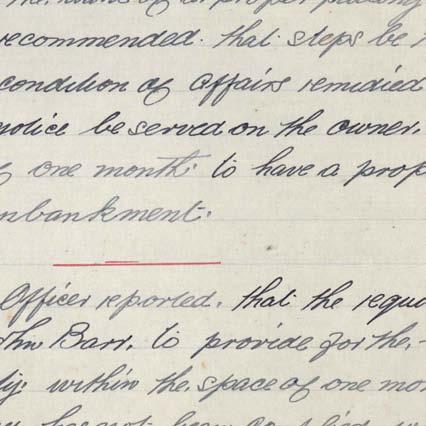 recommended. that steps be
condition of affairs remidied
notice be served on the owner.
of one month. to have a prop
nbankment.
Officer reported. that the requ
ohn Barr. to provide for the.-
within the. space of one mo
has not been complied